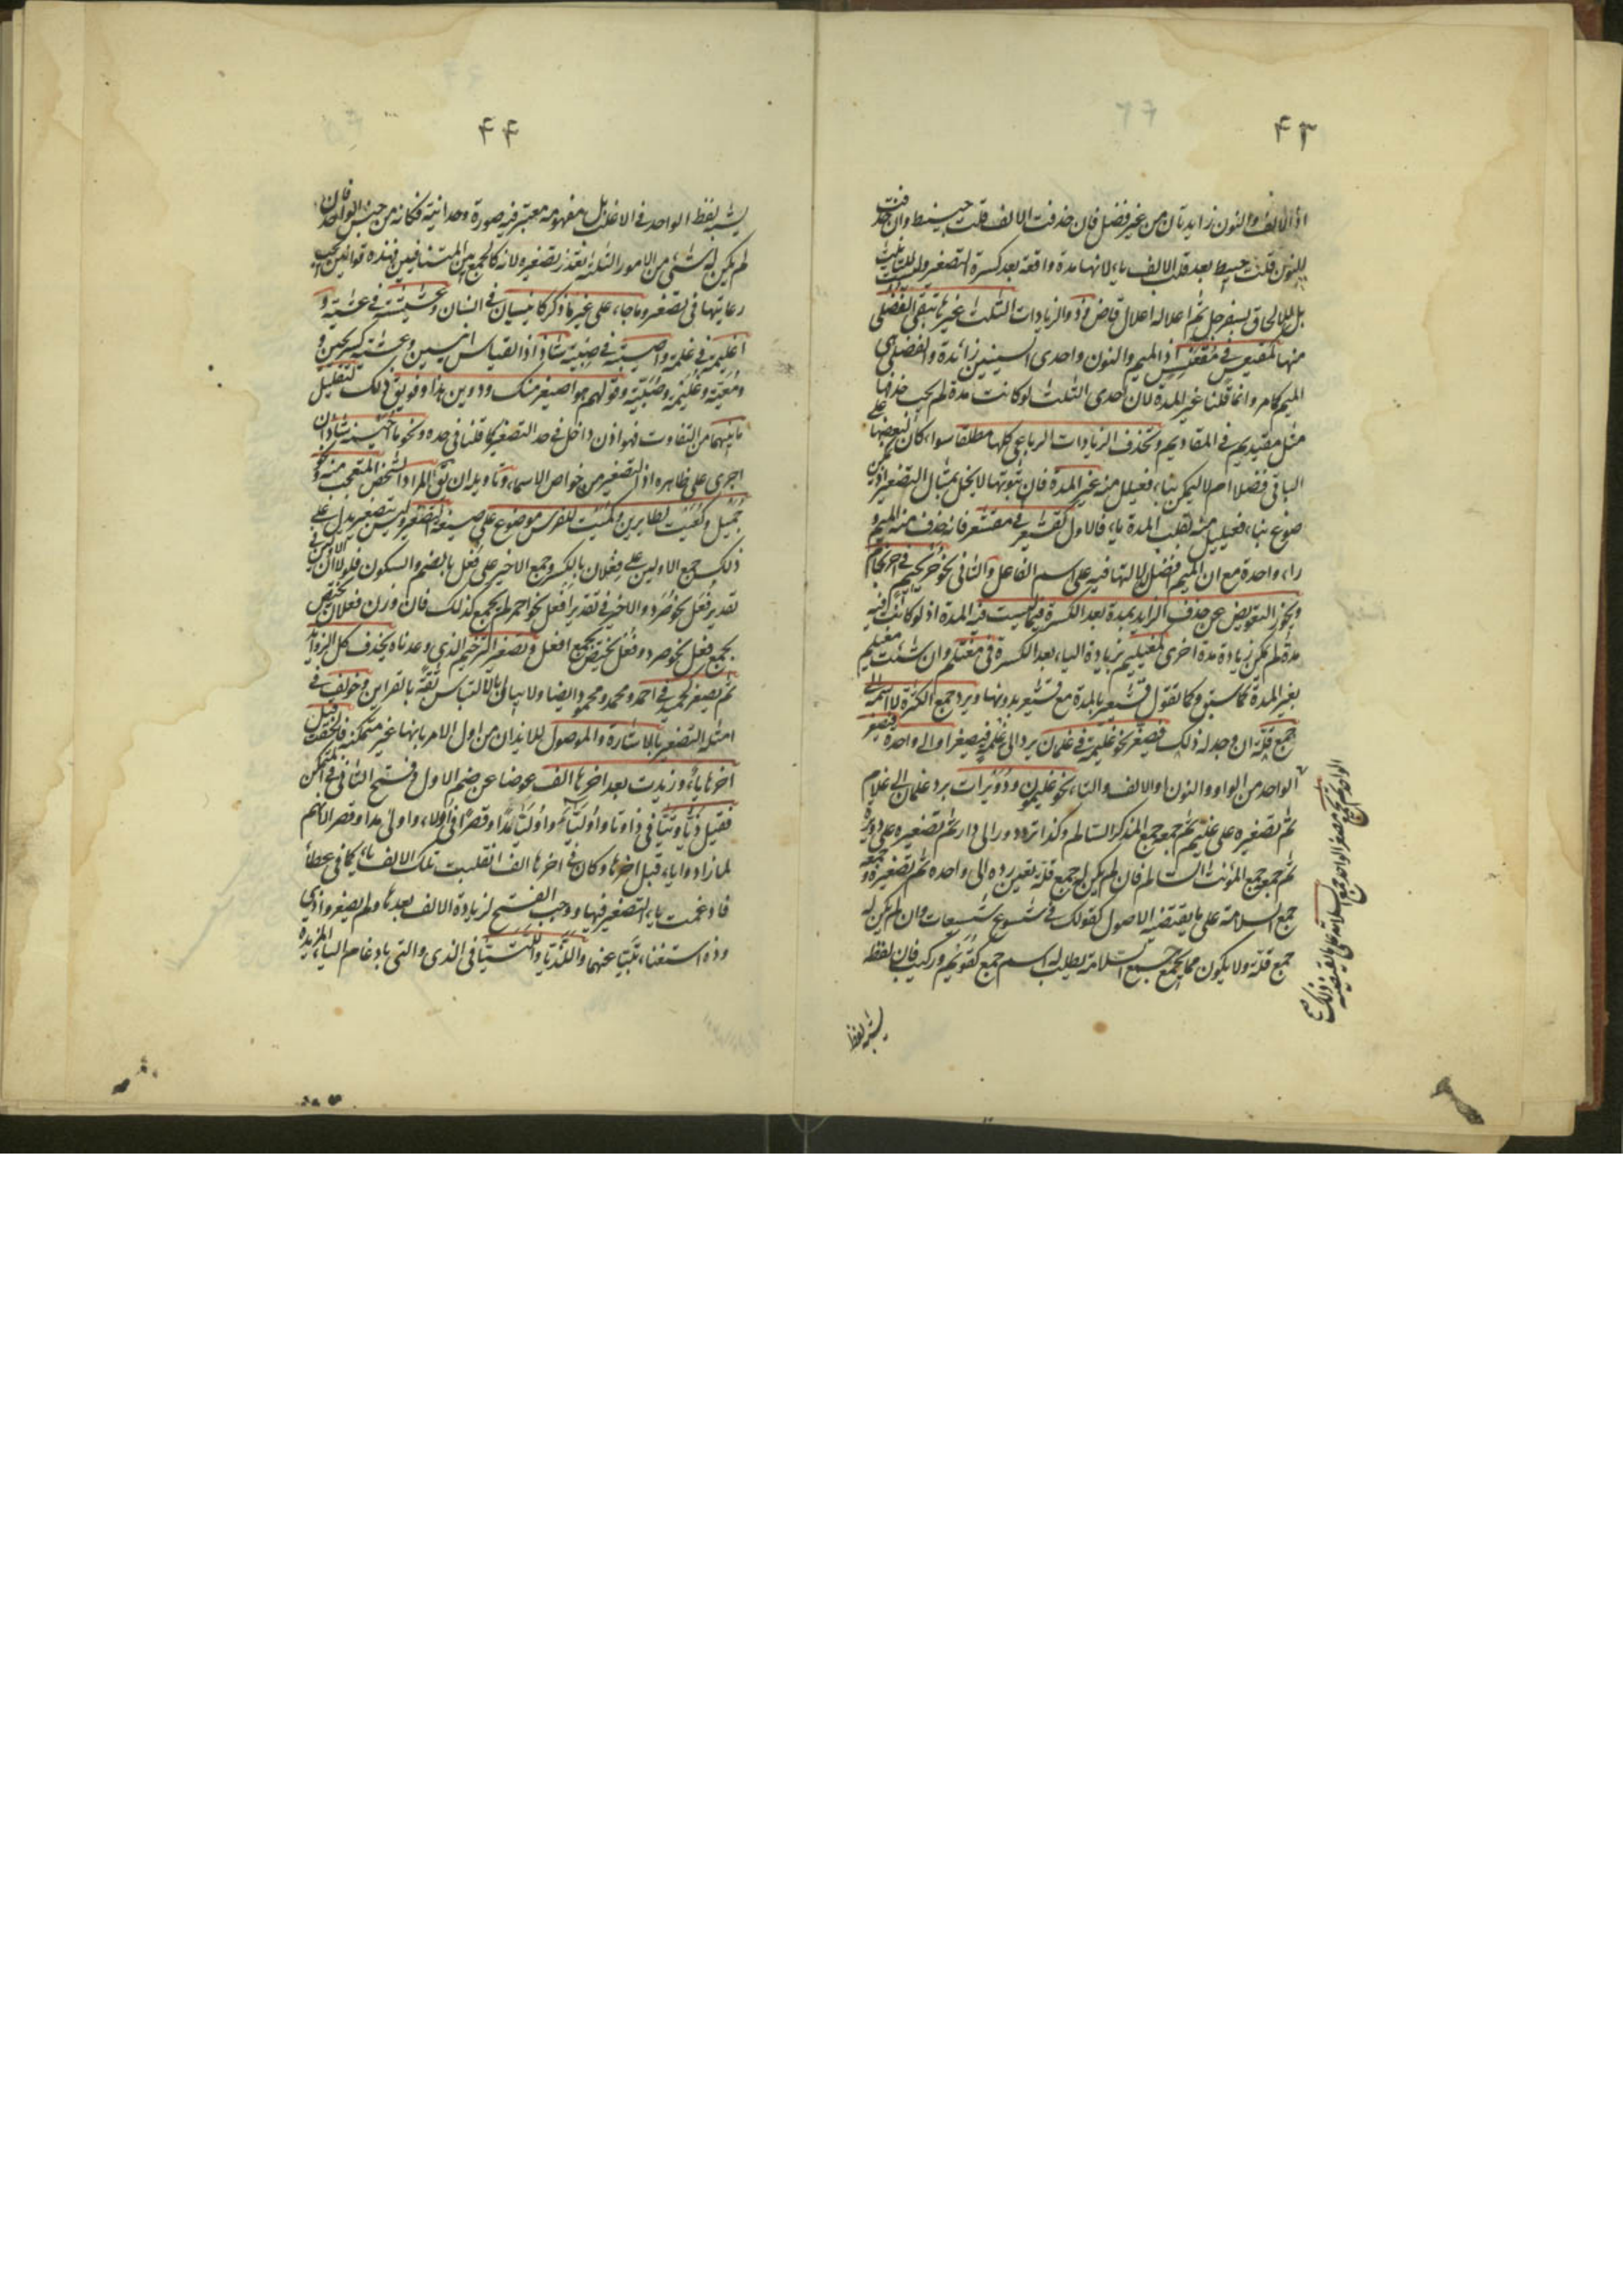 ۴۳
اذ الالف والنون زايدتان من غير فضل فان حذفت الالف قلت حبينط وان حذفت
النون قلت حبيط بعد قلب الالف ياء لانها مدة واقعة بعد كسرة التصغير وليست
بل للالحاق بسفرجل ثم اعلاله اعلال قاض وذو الزيادات الثلث غيرها تبقى الفضلى
منها كمقيعس في مقعنسس اذ الميم والنون واحدى السينين زائدة والفضلى هى
الميم كما مر وانما قلنا غير المدة لان احدى الثلث لو كانت مدة لم يجب حذفها
مثل مقيديم في المقاديم وتحذف الزيادات الرباعى كلها مطلقا سواء كان لبعضها على
الباقى فضلا ام لا ليمكن بناء فعيلل منه غير المدة فان ثبوتها لا يخل بمثال التصغير
صوغ بناء فعيليل منه بقلب المدة ياء فالاول كقشيعر في مقشعر فانه حذف منه الميم و
راء واحدة مع ان الميم فضل لدلالتها فيه على اسم الفاعل والثانى نحو حريجيم في احرنجام
ويجوز التعويض عن حذف الزايد بمدة بعد الكسرة فيما ليست فيه المدة اذ لو كانت فيه
مدة لم يمكن زيادة مدة اخرى كمغيليم بزيادة الياء بعد الكسرة في مغتلم وان شئت مغيلم
بغير المدة كما سبق وكما تقول قشيعير بالمدة مع قشيعر بدونها ويرد جمع الكثرة لا اسمه الى
جمع قلة ان وجد له ذلك فيصغر نحو غليمة في غلمان يرد الى غلمة فيصغر او الى واحده فيصغر
الواحد من الواو والنون او الالف والتاء نحو غليمون ودويرات برد غلمان الى غلام
ثم تصغيره على غليم ثم جمعه جمع المذكر السالم وكذا ترد دور الى دار ثم تصغيره على دويرة
ثم جمعه جمع المؤنث السالم فان لم يكن له جمع قلة تعين رده الى واحده ثم تصغيره وجمعه
جمع السلامة على ما يقتضيه الاصول كقولك في شسوع شسيعات وان لم يكن له
جمع قلة ولا يكون مما يجمع جمع السلامة يطلب له اسم جمع كقويم وركيب فان لفظه
يشبه لفظ
۴۴
يشبه لفظ الواحد في الاغلب بل مفهومه معتبر فيه صورة وحدانية فكانه من جنس الواحد فان
لم يكن له شئ من الامور الثلثة تعذر تصغيره لانه كالجمع بين المتنافيين فهذه قوانين يجب
رعايتها في تصغير وما جاء على غير ما ذكر كانيسيان في انسان وعشيشية في عشية و
اغيلمة في غلمة واصيبية في صبية شاذ اذ القياس انيسين وعشية كسريحين و
ومعية وغليمة وصبية وقولهم هو اصيغر منك ودوين هذا وفويق ذلك لتقليل
ما بينهما من التفاوت فهو اذن داخل في حد التصغير كما قلنا في حده ونحو ما احيسنه شاذ ان
اجرى على ظاهره اذ التصغير من خواص الاسماء وتاويله ان يق المراد الشخص المتعجب منه ونحو
جميل وكعيت لطايرين وكميت للفرس موضوع على صيغة التصغير وليس بتصغير يدل على
ذلك جمع الاولين على فعلان بالكسر وجمع الاخير على فعل بالضم والسكون فلولا ان الاولين في
تقدير فعل نحو صرد والاخير في تقدير افعل نحو احمر لم يجمع كذلك فان وزن فعلان يختص
بجمع فعل نحو صرد وفعل يختص بجمع افعل وتصغير الترخيم الذى وعدناه يحذف كل الزوايد
ثم يصغر كحميد في احمد ومحمد ومحمود ايضا ولا يبالى بالالتباس ثقة بالقراين وخولف في
امثلة التصغير بالاشارة والموصول للايذان من اول الامر بانها غير متمكنة فالحقت قبل
آخرها ياء وزيدت بعد اخرها الف عوضا عن ضم الاول وفتح الثانى في المتمكن
فقيل ذيا وتيا في ذا وتا واوليا مدا وقصرا في اولاء واولى مدا وقصرا لانهم
لما زادوا ياء قبل اخرها وكان في اخرها الف انقلبت تلك الالف ياء كما في عطاء
فادغمت ياء التصغير فيها ووجب الفتح لزيادة الالف بعدها ولم يصغروا ذى
وذه استغناء بتيا عنهما واللذيا واللتيا في الذى والتى بادغام الياء المزيدة